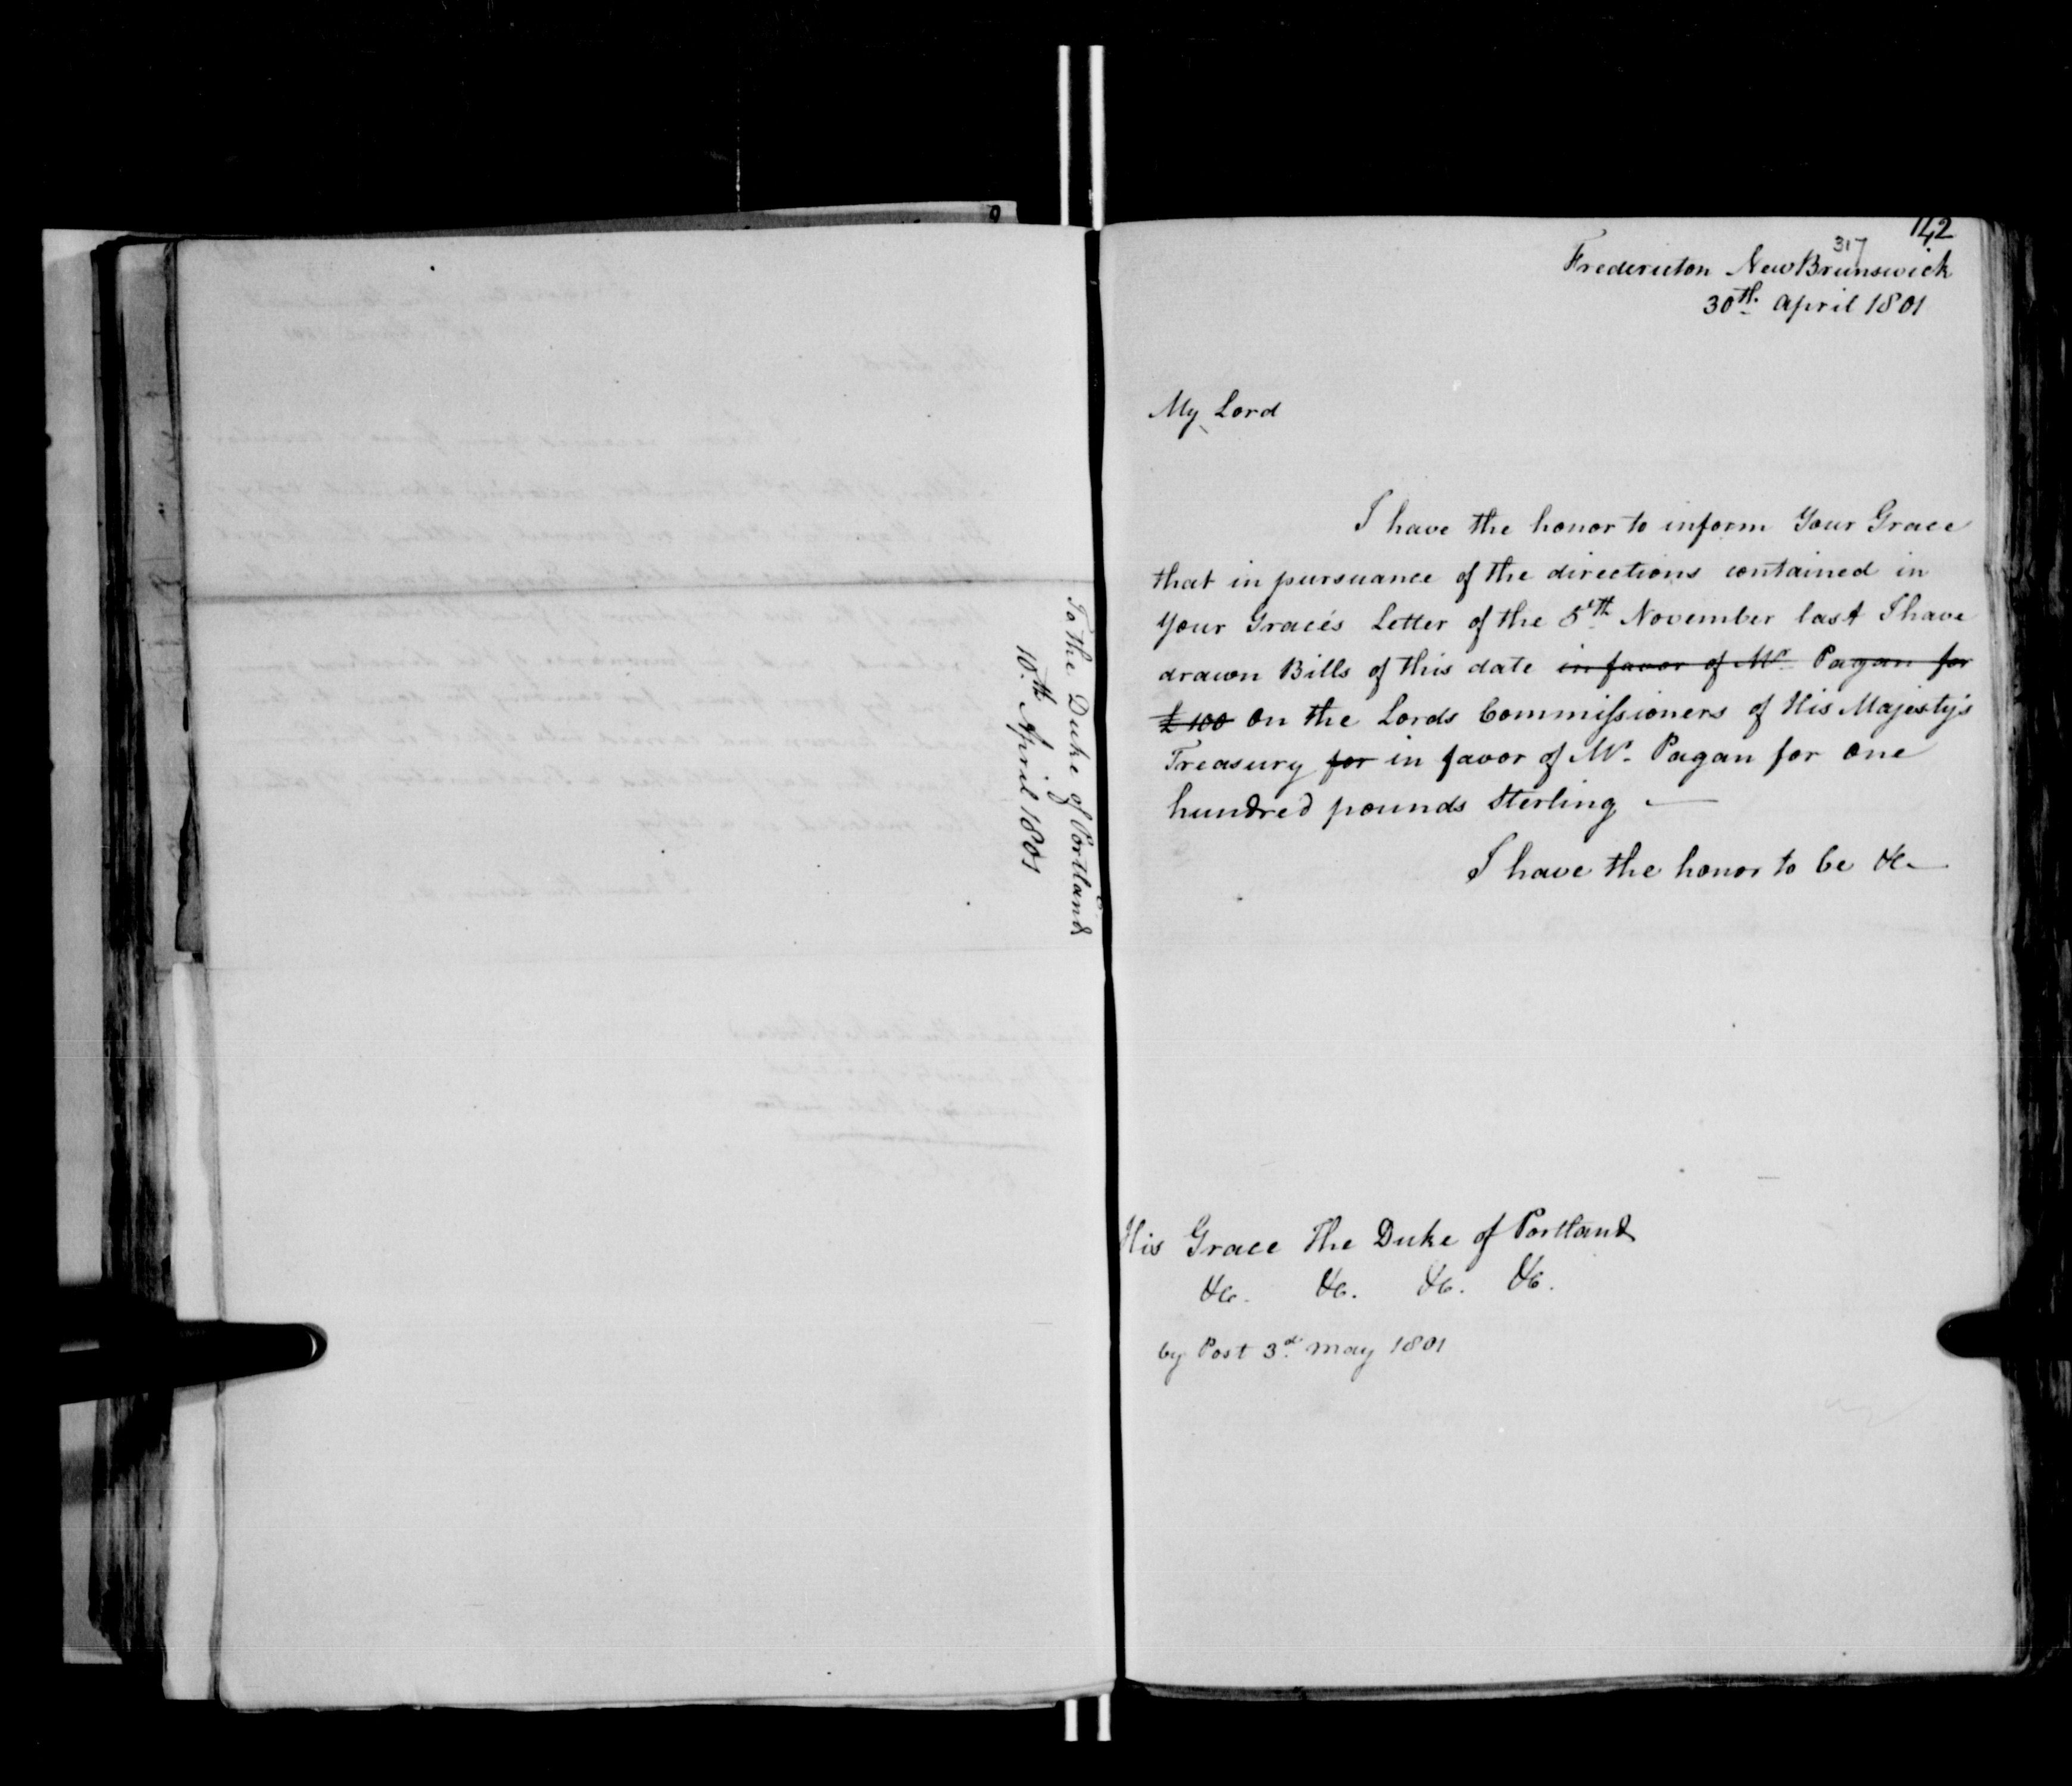 To the Duke of Portland
10th. April 1801
142
317
Fredericton New Brunswick
30th. April 1801
My Lord
I have the honor to inform Your Grace
that in pursuance of the directions contained in
Your Grace's Letter of the 5th November last I have
drawn Bills of this date in favor of Mr. Pagan for
£100 on the Lords Commissioners of His Majesty's
Treasury for in favor of Mr. Pagan for one
hundred pounds Sterling —
I have the honor to be &c
His Grace The Duke of Portland
&c. &c. &c. &c.
by Post 3d. May 1801